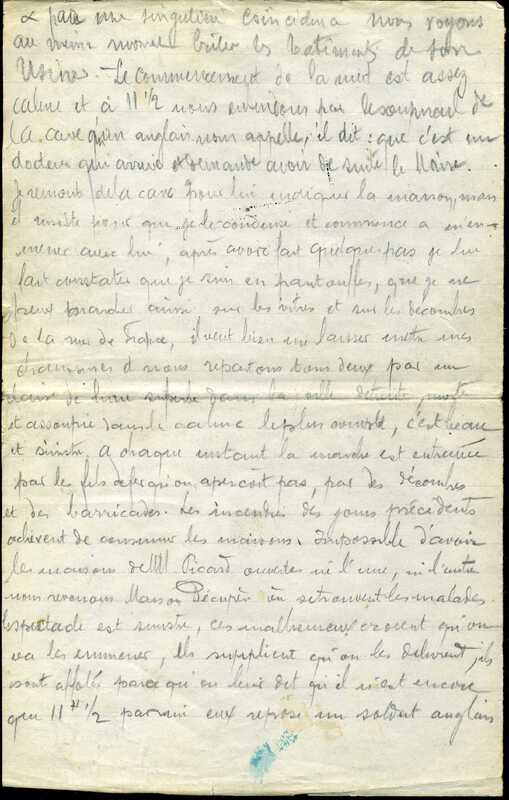 & par une singulière coincidence nous voyons
au même moment brûler les batiments de son
Usine. - Le commencement de la nuit est assez
calme et à 11 1/2 nous entendons par le soupirail de
la cave qu'un anglais nous appelle, il dit : que c'est un
docteur qui arrive et demande avoir de suite le Maire.
Je remonte de la cave pour lui indiquer la maison, mais
il insiste pour que je le conduise et commence a m'em-
mener avec lui, après avoir fait quelque pas je lui
fait constater que je suis en pantoufles, que je ne
peux marcher ainsi sur les vitres et sur les décombres
de la rue de        , il veut bien me laisser mettre mes
chaussures et nous repartons tous deux par un
clair de lune superbe dans la ville détruite, morte
et assoupie dans le calme le plus          , c'est beau
et sinistre. A chaque instant la marche est entravée
par les fils de fer qu'on aperçoit pas, par des décombres
et des barricades. Les incendies des jours précédents
achèvent de consumer les maisons. Impossible d'avoir
les maisons de MM Picard ouvertes ni l'une, ni l'autre
nous revenons Maison           où se trouvent les malades.
le spectacle est sinistre, ces malheureux croient qu'on
va les emmener, ils supplient qu'on les délivrent, ils
sont affolés parce qu'on leur dit qu'il n'est encore
que 11 H 1/2 parmi eux repose un soldat anglais